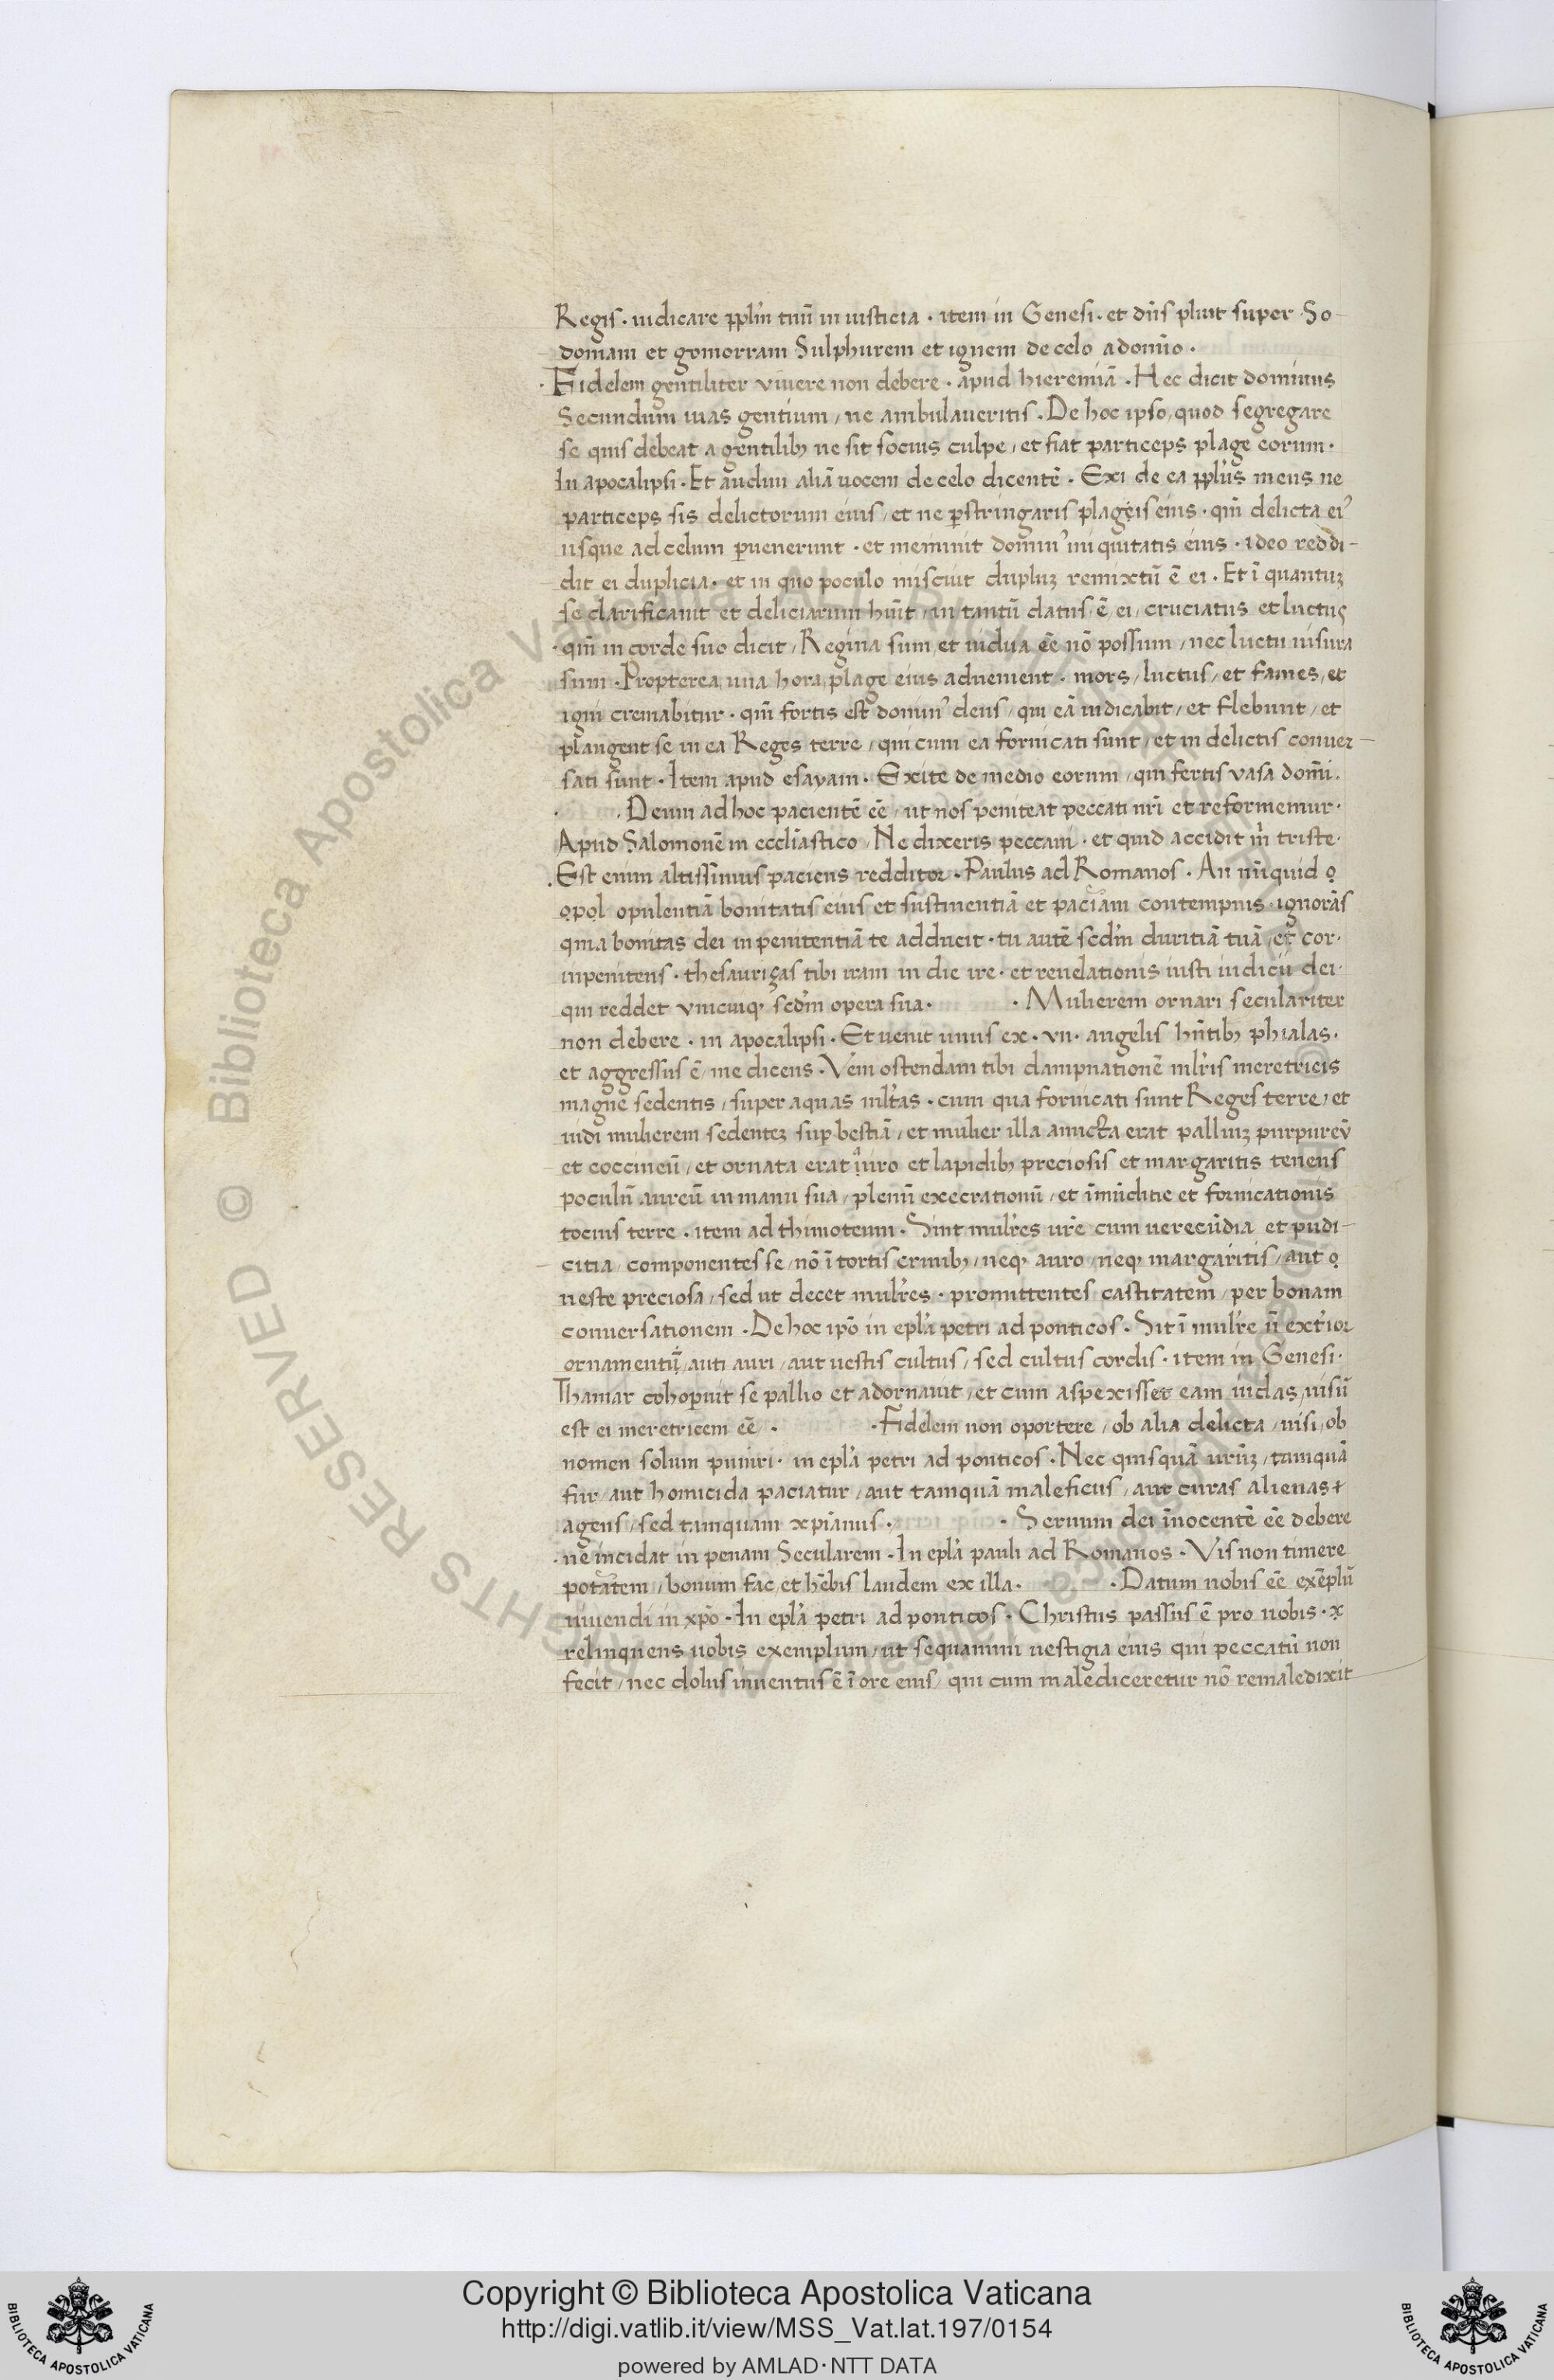 Regis · iudicare pplm̄ tuū in iusticia · item in Genesi · et dn̄s pluit super So-
domam et gomorram Sulphurem et ignem de celo a domīo ·
· Fidelem gentiliter vivere non debere · apud hieremiā · Hec dicit dominus
Secundum uias gentium / ne ambulaueritis · De hoc ipso, quod segregare
se quis debeat a gentilibꝫ ne sit socius culpe / et fiat particeps plage eorum ·
In apocalipsi · Et audiui aliā uocem de celo dicentē · Exi de ea ppl̄us meus ne
particeps sis delictorum eius / et ne p̄stringaris plageis eius · qm̄ delicta ei᾽
usque ad celum p̄uenerunt · et meminit domin᾽ iniquitatis eius · ideo reddi-
dit ei duplicia · et in quo poculo miscuit dupluꝫ remixtū ē ei · Et ī quantuꝫ
se clarificauit et deliciarum hūit / in tantū datus ē ei / cruciatus et luctus
· qm̄ in corde suo dicit / Regina sum et uidua ēē nō possum / nec luctu uisura
sum · Propterea una hora plage eius aduenient · mors / luctus / et fames / et
igni cremabitur · qm̄ fortis est domin᾽ deus / qui eā iudicabit / et flebunt / et
plangent se in ea Reges terre / qui cum ea fornicati sunt / et in delictis conuer-
sati sunt · Item apud esayam · Exite de medio eorum / qui fertis vasa domī ·
· Deum ad hoc pacientē ēē / ut nos peniteat peccati nr̄i et reformemur ·
Apud Salomonē in eccl̄iastico / Ne dixeris peccaui · et quid accidit m̄ triste ·
· Est enim altissimus paciens redditor · Paulus ad Romanos · An nūquid o
opol opulentiā bonitatis eius et sustinentiā et paciām contempnis · ignorās
quia bonitas dei in penitentiā te adducit · tu autē sedm̄ duritiā tuā / et cor ·
inpenitens · thesaurizas tibi iram in die ire · et reuelationis iusti iudicii dei ·
qui reddet vnicuiqꝫ sedm̄ opera sua · · Mulierem ornari seculariter
non debere · in apocalipsi · Et uenit unus ex · vii · angelis hn̄tibꝫ phialas ·
et aggressus ē / me dicens · Veni ostendam tibi dampnationē mlr̄is meretricis
magne sedentis / super aquas mlt̄as · cum qua fornicati sunt Reges terre / et
uidi mulierem sedenteꝫ sup̄ bestiā / et mulier illa amicta erat palliuꝫ purpureū
et coccineū / et ornata erat auro et lapidibꝫ preciosis et margaritis tenens
poculū aureū in manu sua / plenū execrationū / et īmūditie et fornicationis
tocius terre · item ad thimoteum · Sint mulr̄es ur̄e cum uerecūdia et pudi-
citia / componentes se / nō ī tortis crinibꝫ / neqꝫ auro / neqꝫ margaritis / aut o
ueste preciosa / sed ut decet mulr̄es · promittentes castitatem / per bonam
conuersationem · De hoc ip̄o in epl̄a petri ad ponticos · Sit ī mulr̄e ū ext̄ior
ornamentū / auti auri / aut uestis cultus / sed cultus cordis · item in Genesi ·
Thamar cohop̄uit se pallio et adornauit / et cum aspexisset eam iudas / uisū
est ei meretricem ēē · · Fidelem non oportere / ob alia delicta / nisi / ob
nomen solum puniri · in epl̄a petri ad ponticos · Nec quisquā ur̄uꝫ / tamquā
fur / aut homicida paciatur / aut tamquā maleficus / aut curas alienas
agens / sed tamquam xp̄ianus · · Seruum dei īnocentē ēē debere
· ne incidat in penam Secularem · In epl̄a pauli ad Romanos · Vis non timere
potātem / bonum fac / et hēbis laudem ex illa · · Datum nobis ēē exēplū
uiuendi in xp̄o · In epl̄a petri ad ponticos · Christus passus ē pro nobis · x
relinquens uobis exemplum / ut sequamini uestigia eius qui peccatū non
fecit / nec dolus inuentus ē ī ore eius / qui cum malediceretur nō remaledixit
© Biblioteca Apostolica Vaticana
ALL RIGHTS RESERVED
Copyright © Biblioteca Apostolica Vaticana
http://digi.vatlib.it/view/MSS_Vat.lat.197/0154
powered by AMLAD·NTT DATA
BIBLIOTECA APOSTOLICA VATICANA
BIBLIOTECA APOSTOLICA VATICANA